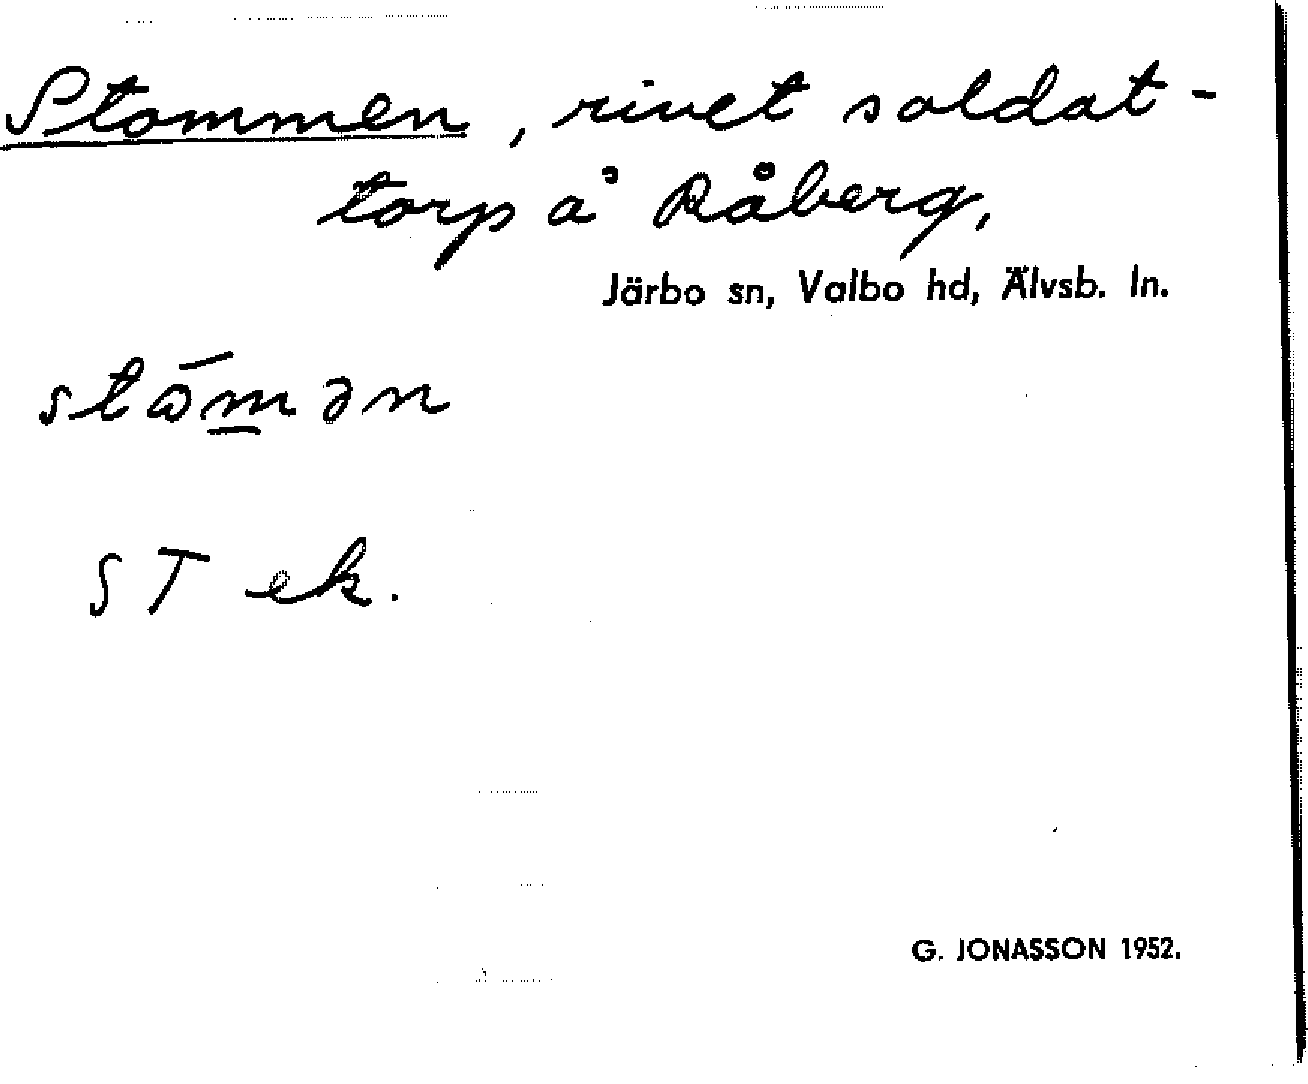 Stommen, rivet soldat-
torp å Råberg,
Järbo sn, Valbo hd, Älvsb. ln.
ST ek.
G. JONASSON 1952.